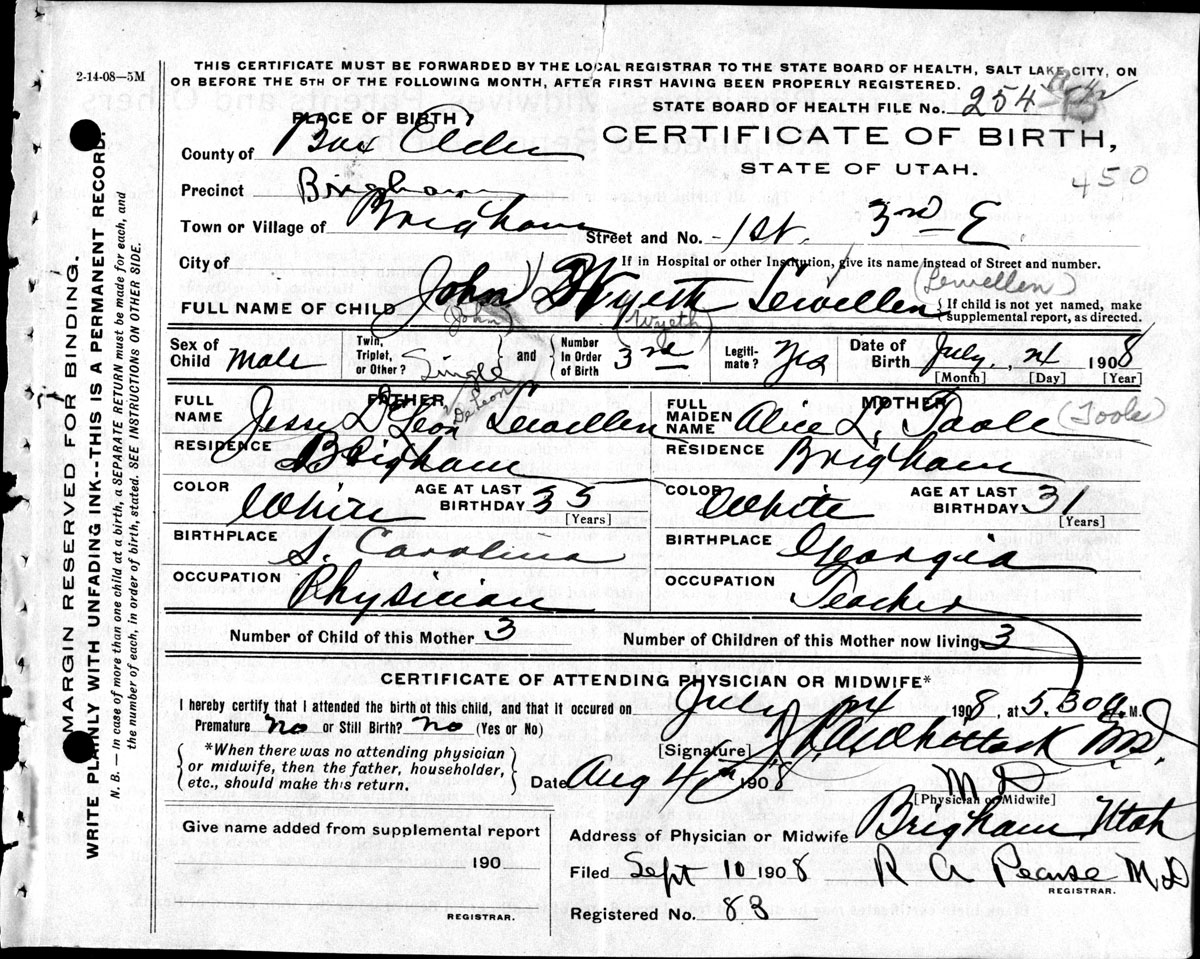 2-14-08—5M
THIS CERTIFICATE MUST BE FORWARDED BY THE LOCAL REGISTRAR TO THE STATE BOARD OF HEALTH, SALT LAKE CITY, ON
OR BEFORE THE 5TH OF THE FOLLOWING MONTH, AFTER FIRST HAVING BEEN PROPERLY REGISTERED.
STATE BOARD OF HEALTH FILE No. 254
PLACE OF BIRTH
CERTIFICATE OF BIRTH,
STATE OF UTAH.
450
County of Box Elder
Precinct Brigham
Town or Village of Brigham
Street and No. 1st. 3rd E
City of
If in Hospital or other Institution, give its name instead of Street and number.
FULL NAME OF CHILD John Wyeth Lewellen (Lewellen)
(John) (Wyeth)
{ If child is not yet named, make
supplemental report, as directed.
Sex of Child Male
Twin, Triplet, or Other? Single and { Number In Order of Birth 3rd
Legiti-mate? Yes
Date of Birth July, 24 1908
[Month] [Day] [Year]
FATHER
FULL NAME Jesse D'Leon Lewellen
DeLeon
RESIDENCE Brigham
COLOR White AGE AT LAST BIRTHDAY 35
[Years]
BIRTHPLACE S. Carolina
OCCUPATION Physician
MOTHER
FULL MAIDEN NAME Alice L. Toole (Toole)
RESIDENCE Brigham
COLOR White AGE AT LAST BIRTHDAY 31
[Years]
BIRTHPLACE Georgia
OCCUPATION Teacher
Number of Child of this Mother 3 Number of Children of this Mother now living 3
CERTIFICATE OF ATTENDING PHYSICIAN OR MIDWIFE*
I hereby certify that I attended the birth of this child, and that it occured on July 24 1908, at 5.30 a. M.
Premature No or Still Birth? No (Yes or No)
{ *When there was no attending physician
or midwife, then the father, householder,
etc., should make this return. }
[Signature] M.D.
Date Aug 4th 1908
MD
[Physician or Midwife]
Give name added from supplemental report
190
REGISTRAR.
Address of Physician or Midwife Brigham Utah
Filed Sept 10 1908 R A Pearse M D
REGISTRAR.
Registered No. 83
MARGIN RESERVED FOR BINDING.
WRITE PLAINLY WITH UNFADING INK--THIS IS A PERMANENT RECORD.
N. B. — In case of more than one child at a birth, a SEPARATE RETURN must be made for each, and
the number of each, in order of birth, stated. SEE INSTRUCTIONS ON OTHER SIDE.